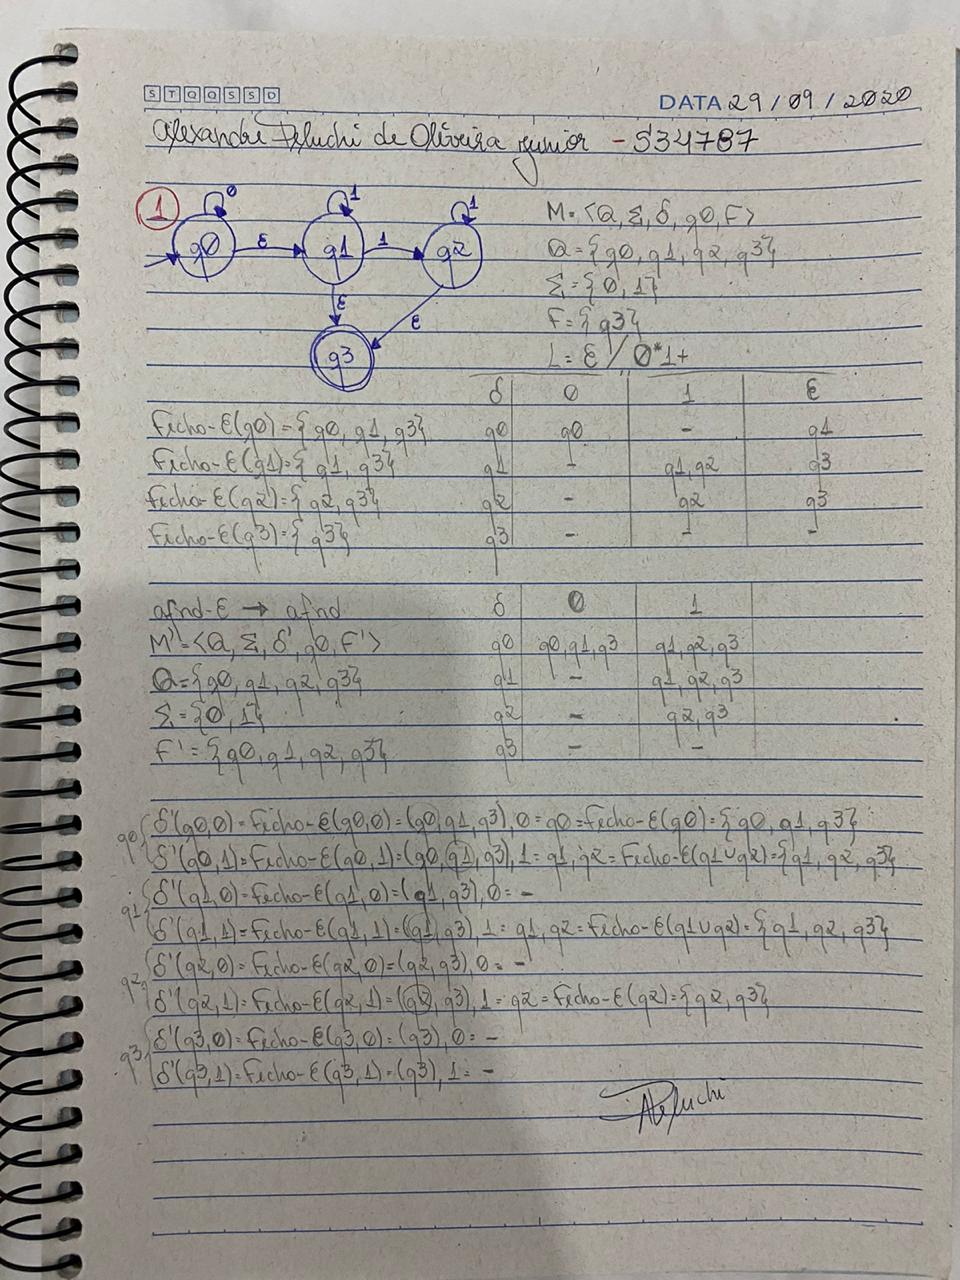 S T Q Q S S D
DATA 29/09/2020
Alexandre Peluchi de Oliveira Junior - 534787
1
0 1 1
q0 ε q1 1 q2
ε ε
q3
M=<Q, Σ, δ, q0, F>
Q={q0, q1, q2, q3}
Σ={0, 1}
F={q3}
L= ε / 0*1+
δ 0 1 ε
Fecho-ε(q0)={q0, q1, q3} q0 q0 - q1
Fecho-ε(q1)={q1, q3} q1 - q1,q2 q3
Fecho-ε(q2)={q2, q3} q2 - q2 q3
Fecho-ε(q3)={q3} q3 - - -
afnd-ε → afnd δ 0 1
M'=<Q, Σ, δ', q0, F'> q0 q0,q1,q3 q1,q2,q3
Q={q0, q1, q2, q3} q1 - q1,q2,q3
Σ={0, 1} q2 - q2,q3
F'={q0, q1, q2, q3} q3 - -
q0{ δ'(q0,0)=Fecho-ε(q0,0)=(q0,q1,q3),0=q0=Fecho-ε(q0)={q0, q1, q3}
δ'(q0,1)=Fecho-ε(q0,1)=(q0,q1,q3),1=q1,q2=Fecho-ε(q1∪q2)={q1, q2, q3}
q1{ δ'(q1,0)=Fecho-ε(q1,0)=(q1,q3),0=-
δ'(q1,1)=Fecho-ε(q1,1)=(q1,q3),1=q1,q2=Fecho-ε(q1∪q2)={q1, q2, q3}
q2{ δ'(q2,0)=Fecho-ε(q2,0)=(q2,q3),0=-
δ'(q2,1)=Fecho-ε(q2,1)=(q2,q3),1=q2=Fecho-ε(q2)={q2, q3}
q3{ δ'(q3,0)=Fecho-ε(q3,0)=(q3),0=-
δ'(q3,1)=Fecho-ε(q3,1)=(q3),1=-
APeluchi